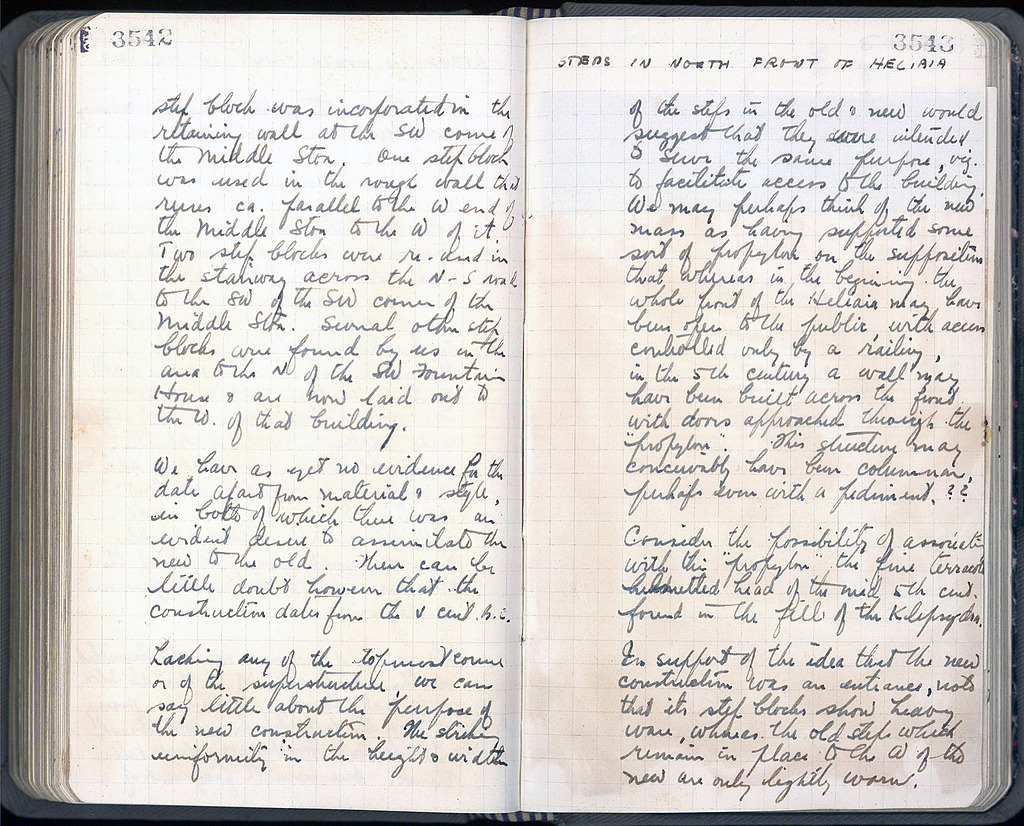 3542
step block was incorporated in the
retaining wall at the SW corner of
the Middle Stoa. One step block
was used in the rough wall that
runs ca. parallel to the W end of
the Middle Stoa to the W of it.
Two step blocks were re-used in
the stairway across the N-S road
to the SW of the SW corner of the
Middle Stoa. Several other step
blocks were found by us in the
area to the N of the SW Fountain
House & are now laid out to
the W. of that building.
We have as yet no evidence for the
date apart from material & style,
in both of which there was an
evident desire to assimilate the
new to the old. There can be
little doubt however that the
construction dates from the V cent. B.C.
Lacking any of the topmost course
or of the superstructure, we can
say little about the purpose of
the new construction. The striking
uniformity in the height & width
3543
STEPS IN NORTH FRONT OF HELIAIA
of the steps in the old & new would
suggest that they were intended
to serve the same purpose, viz.
to facilitate access to the building.
We may perhaps think of the new
mass as having supported some
sort of propylon on the supposition
that whereas in the beginning the
whole front of the Heliaia may have
been open to the public with access
controlled only by a railing,
in the 5th century a wall may
have been built across the front
with doors approached through the
"propylon". This structure may
conceivably have been columnar,
perhaps even with a pediment. ??
Consider the possibility of associat-
with this "propylon" the fine terracotta
helmetted head of the mid 5th cent.
found in the fill of the Klepsydra.
In support of the idea that the new
construction was an entrance, note
that its step blocks show heavy
wear, whereas the old steps which
remain in place to the W of the
new are only lightly worn.